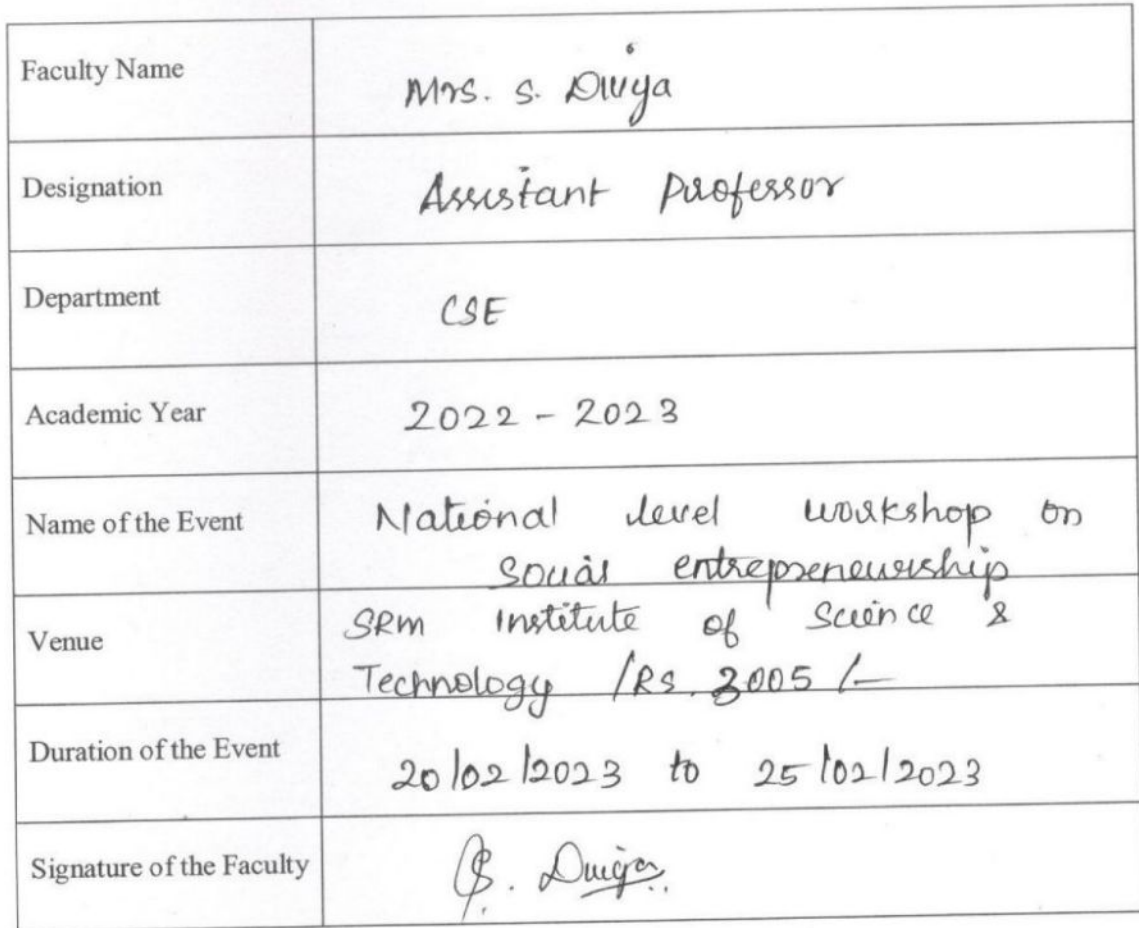 Faculty Name Mrs. S. Divya
Designation Assistant Professor
Department CSE
Academic Year 2022 - 2023
Name of the Event National level workshop on
Social entrepreneurship
Venue SRM Institute of Science &
Technology /Rs. 3005 /-
Duration of the Event 20/02/2023 to 25/02/2023
Signature of the Faculty S. Divya